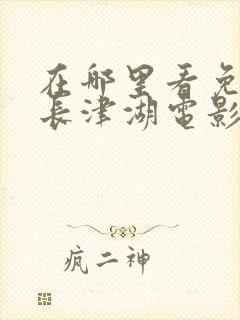 在那里看免
长津湖电影
疯二神